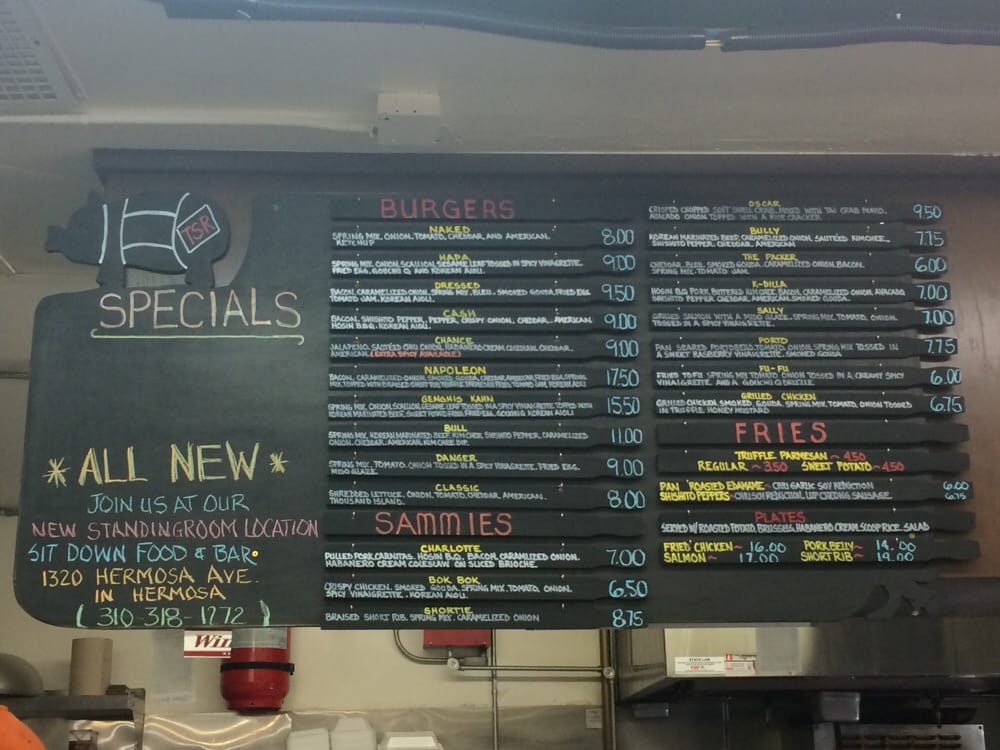 TSR
SPECIALS
* ALL NEW *
JOIN US AT OUR
NEW STANDINGROOM LOCATION
SIT DOWN FOOD & BAR
1320 HERMOSA AVE.
IN HERMOSA
(310-318-1272)
BURGERS
NAKED
SPRING MIX, ONION, TOMATO, CHEDDAR, AND AMERICAN. 8.00
KETCHUP
HAPA
SPRING MIX, ONION, SCALLION, SESAME LEAF TOSSED IN A SPICY VINAIGRETTE, 9.00
FRIED EGG, GOUCHU Q AND KOREAN AIOLI.
DRESSED
BACON, CARAMELIZED ONION, SPRING MIX, BLEU, SMOKED GOUDA, FRIED EGG 9.50
TOMATO JAM, KOREAN AIOLI.
CASH
BACON, SHISHITO PEPPER, PEPPER, CRISPY ONION, CHEDDAR, AMERICAN, 9.00
HOSIN B.B.Q. KOREAN AIOLI.
CHANCE
JALAPENO, SAUTÉED ONION, HABANERO CREAM, COLESLAW, CHEDDAR, 9.00
AMERICAN. (EXTRA SPICY AVAILABLE)
NAPOLEON
BACON, CARAMELIZED ONION, SMOKED GOUDA, CHEDDAR, AMERICAN, FRIED EGG, SPRING 17.50
MIX, TOPPED WITH BRAISED SHORT RIB, TRUFFLE PARMESAN FRIES, TOMATO JAM, KOREAN AIOLI
GENGHIS KAHN
SPRING MIX, ONION, SCALLION, SESAME LEAF TOSSED IN A SPICY VINAIGRETTE, TOPPED WITH 15.50
KOREAN MARINATED BEEF, SWEET POTATO FRIES, FRIED EGG, KOREAN AIOLI
BULL
SPRING MIX, KOREAN MARINATED BEEF, KIMCHEE, SHISHITO PEPPER, CARAMELIZED 11.00
ONION, CHEDDAR, AMERICAN, KIMCHEE DIP.
DANGER
SPRING MIX, TOMATO, ONION TOSSED IN A SPICY VINAIGRETTE, FRIED EGG, 9.00
MISO GLAZE.
CLASSIC
SHREDDED LETTUCE, ONION, TOMATO, CHEDDAR, AMERICAN, 8.00
THOUSAND ISLAND.
SAMMIES
CHARLOTTE
PULLED PORK CARNITAS, HOSIN B.Q. BACON, CARAMLIZED ONION, 7.00
HABANERO CREAM COLESLAW ON SLICED BRIOCHE.
BOK BOK
CRISPY CHICKEN, SMOKED GOUDA, SPRING MIX, TOMATO, ONION, 6.50
SPICY VINAIGRETTE, KOREAN AIOLI.
SHORTIE
BRAISED SHORT RIB, SPRING MIX, CARAMELIZED ONION 8.75
OSCAR
CRISPED CHOPPED SOFT SHELL CRAB, MIXED WITH CRAB 9.50
AVOCADO ONION TOPPED WITH A RICE CRACKER.
BULLY
KOREAN MARINATED BEEF, CARAMELIZED ONION, SAUTÉED KIMCHEE, 7.75
SHISHITO PEPPER, CHEDDAR, AMERICAN
THE PACKER
CHEDDAR, BLEU, SMOKED GOUDA, CARAMELIZED ONION, BACON, 6.00
SPRING MIX, TOMATO JAM.
K-DILLA
HOSIN B.Q PORK, BUTTERED KIMCHEE, BACON, CARAMELIZED ONION, AVOCADO 7.00
SHISHITO PEPPER, CHEDDAR, AMERICAN, SMOKED GOUDA.
SALLY
GRILLED SALMON WITH A MISO GLAZE, SPRING MIX, TOMATO, ONION, 7.00
TOSSED IN A SPICY VINAIGRETTE.
PORTO
PAN SEARED PORTOBELLO, TOMATO, ONION, SPRING MIX TOSSED IN 7.75
A SWEET RASBERRY VINAIGRETTE, SMOKED GOUDA
FU-FU
FRIED TOFU SPRING MIX TOMATO ONION TOSSED IN A CREAMY SPICY 6.00
VINAIGRETTE AND A GOUCHU Q DRIZZLE.
GRILLED CHICKEN
GRILLED CHICKEN, SMOKED GOUDA, SPRING MIX, TOMATO, ONION TOSSED 6.75
IN TRUFFLE HONEY MUSTARD
FRIES
TRUFFLE PARMESAN ~ 4.50
REGULAR ~ 3.50 SWEET POTATO ~ 4.50
PAN ROASTED EDAMAME ~ CHILI GARLIC SOY REDUCTION 6.00
SHISHITO PEPPERS ~ CHILI SOY REDUCTION, LUP CHEONG SAUSAGE. 6.75
PLATES
SERVED W/ ROASTED POTATO, BRUSSELS, HABANERO CREAM, SCOOP RICE, SALAD
FRIED CHICKEN ~ 16.00 PORK BELLY ~ 14.00
SALMON ~ 17.00 SHORT RIB ~ 19.00